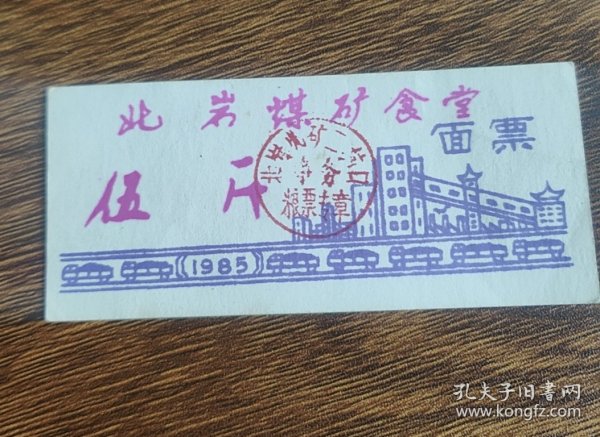 北岩煤矿食堂
面票
伍斤
粮票专章
(1985)
孔夫子旧书网
www.kongfz.com